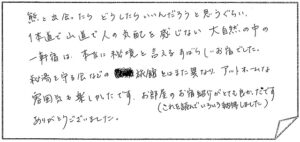 熊と出会ったら どうしたらいいんだろうと思うぐらい、
1本道で山道で人の気配を感じない 大自然の中の
一軒宿は、本当に秘境と言えるすばらしいお宿でした。
秘湯を守る会などの 旅館とはまた異なり、アットホームな
雰囲気も楽しかったです。お部屋のお宿紹介がとても良かったです
(これを読んでいろいろ納得しました)
ありがとうございました。